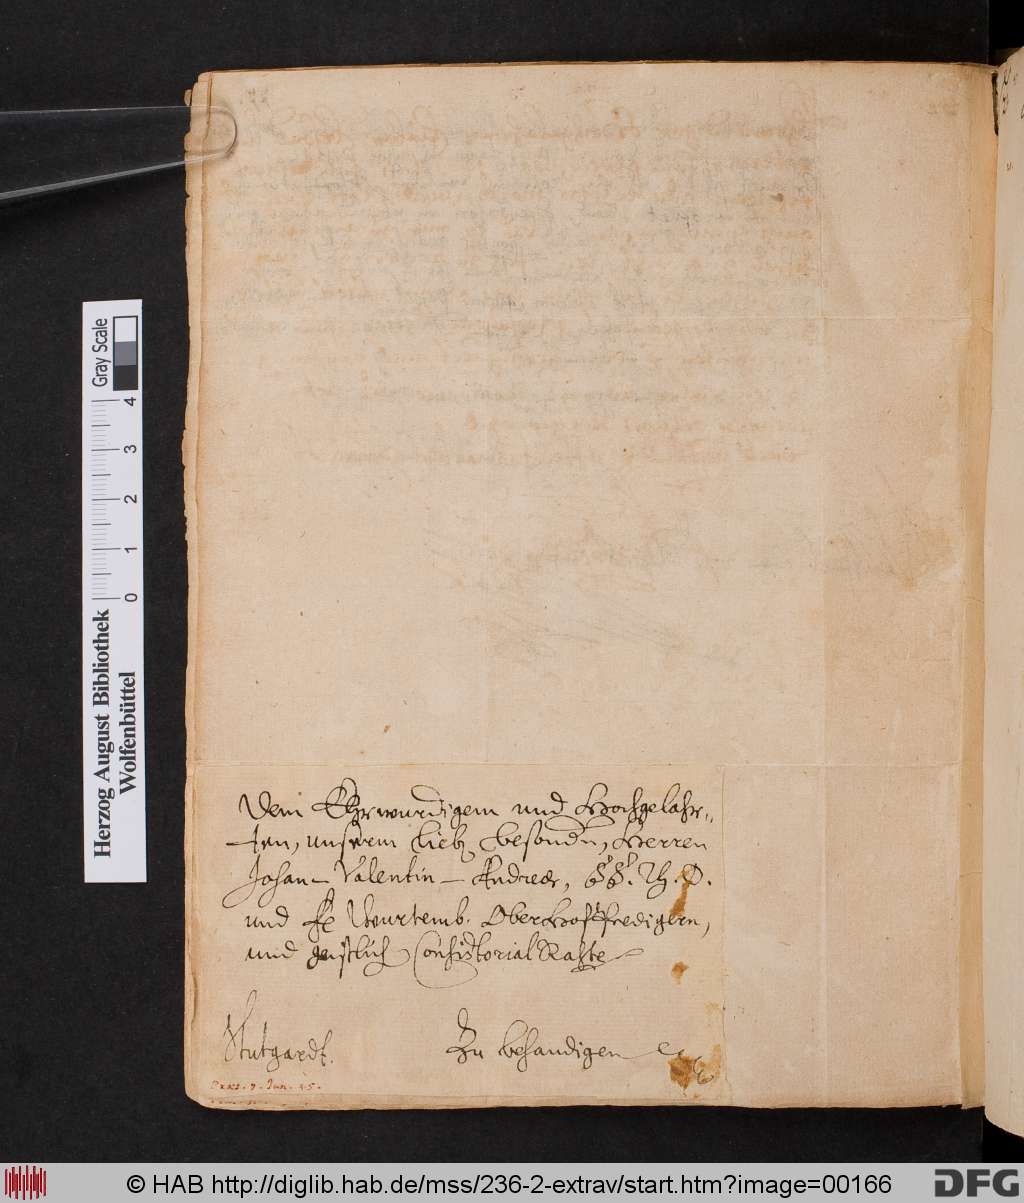 Dem Ehrwürdigem und Hochgelahr„
ten, unserm lieb besondn, Herren
Johan Valentin Andreæ, SS. Th. D.
und Wurtemb. OberHofPredigern,
und geistlich Consistorial Rahte
Stutgardt. Zu behandigen
Jun. 45.
Gray Scale
0 1 2 3 4
Herzog August Bibliothek
Wolfenbüttel
© HAB http://diglib.hab.de/mss/236-2-extrav/start.htm?image=00166
DFG